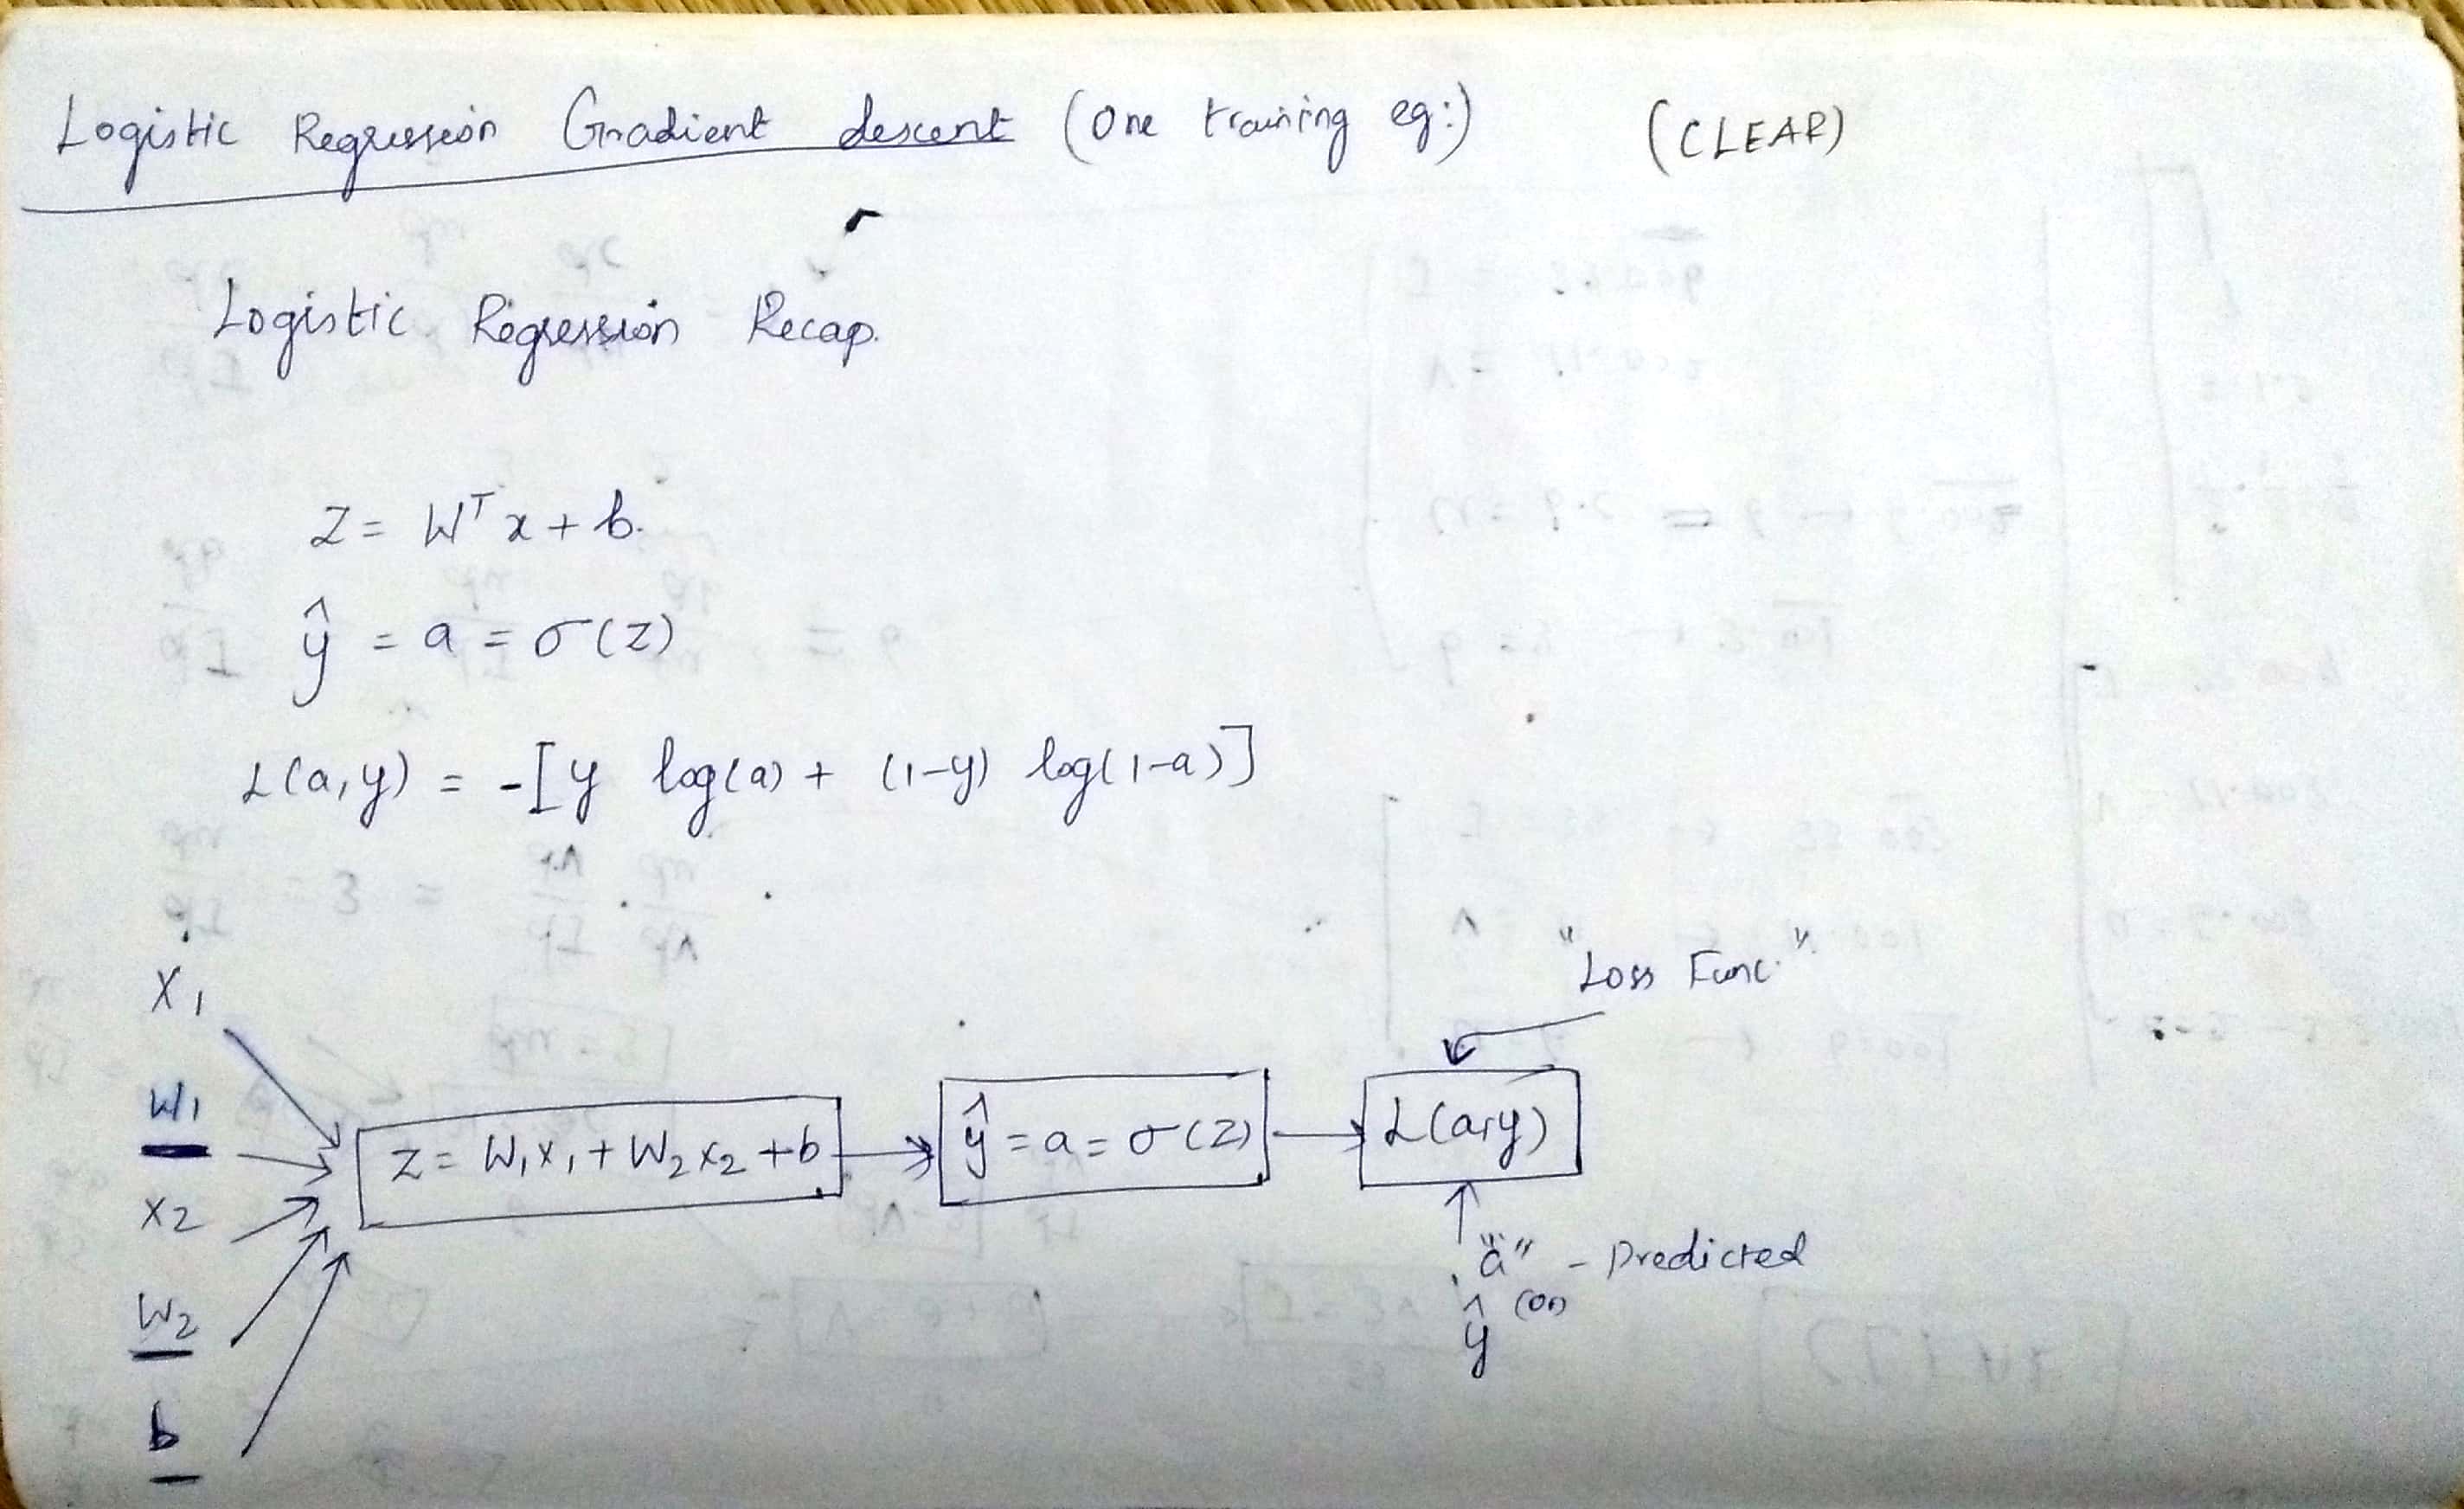 Logistic Regression Gradient descent (One training eg:) (CLEAR)
Logistic Regression Recap.
Z = Wᵀx + b.
ŷ = a = σ(z)
L(a,y) = -[y log(a) + (1-y) log(1-a)]
"Loss Func."
X₁
W₁
X₂
W₂
b
Z = W₁X₁ + W₂X₂ + b
ŷ = a = σ(z)
L(a,y)
"a" - Predicted
(or)
ŷ